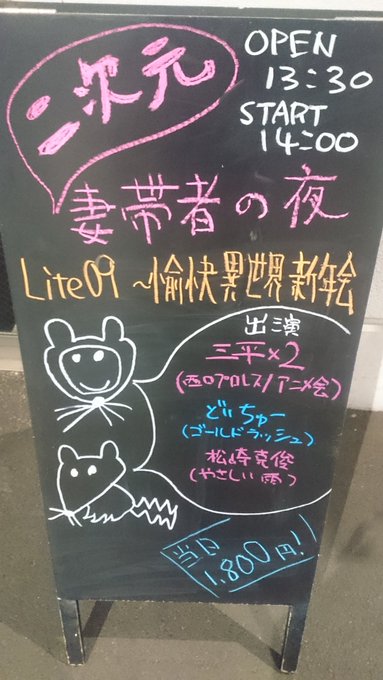 二次元
OPEN
13:30
START
14:00
妻帯者の夜
Lite09 ～愉快異世界新年会
出演
三平×2
(西口プロレス/アニメ会)
どぃちゅー
(ゴールドラッシュ)
松崎克俊
(やさしい雨)
当日
1,800円!